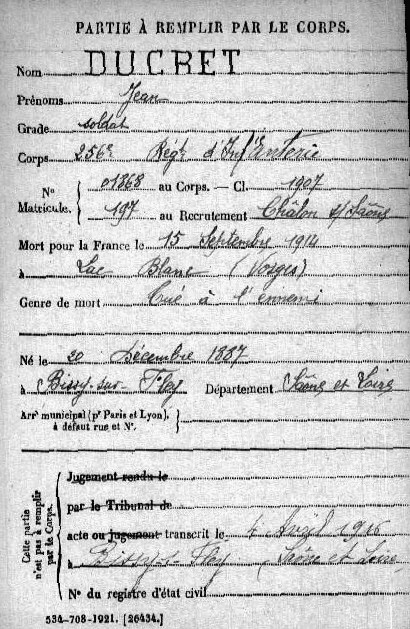 PARTIE À REMPLIR PAR LE CORPS.
Nom DUCRET
Prénoms Jean
Grade soldat
Corps 256e Régt d'Infanterie
N° Matricule. { 01368 au Corps. — Cl. 1907
197 au Recrutement Châlon s/ Saône
Mort pour la France le 15 Septembre 1914
à Lac Blanc (Vosges)
Genre de mort Tué à l'ennemi
Né le 20 Décembre 1887
à Bissy-sur-Fley Département Saône et Loire
Arr' municipal (p' Paris et Lyon), à défaut rue et N°. }
Cette partie n'est pas à remplir par le Corps.
Jugement rendu le
par le Tribunal de
acte ou jugement transcrit le 4 Avril 1916
à Bissy-s-Fley (Saône et Loire)
N° du registre d'état civil
534-708-1921. [26434.]